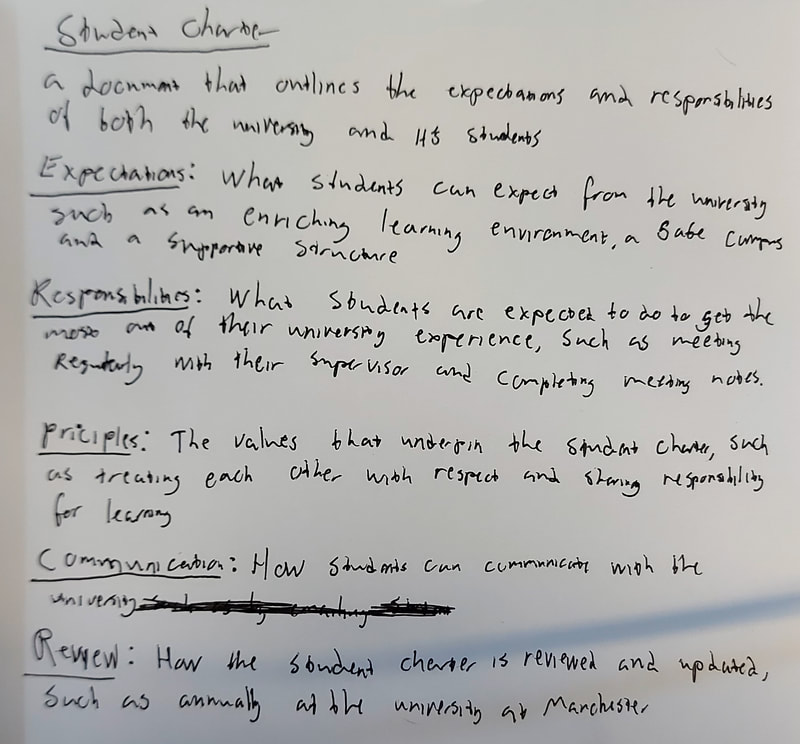 Student Charter
a document that outlines the expectations and responsbilities
of both the university and its students
Expectations: What students can expect from the university
such as an enriching learning environment, a Safe Campus
and a Supportive Structure
Responsibilities: What Students are expected to do to get the
most out of their university experience, Such as meeting
Regularly with their Supervisor and Completing meeting notes.
Priciples: The values that underpin the student charter, such
as treating each other with respect and sharing responsibility
for learning
Communication: How students can communicate with the
university
Review: How the student charter is reviewed and updated,
Such as annually at the university at Manchester